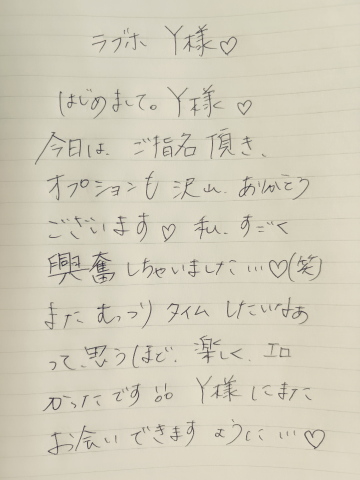 ラブホ Y様♡
はじめまして。Y様 ♡
今日は、ご指名 頂き、
オプションも 沢山、ありがとう
ございます♡ 私、すごく
興奮 しちゃいました…♡(笑)
また むっつり タイム したいなぁ
って、思うほど、楽しく、エロ
かったです Y様 にまた
お会いできますように…♡